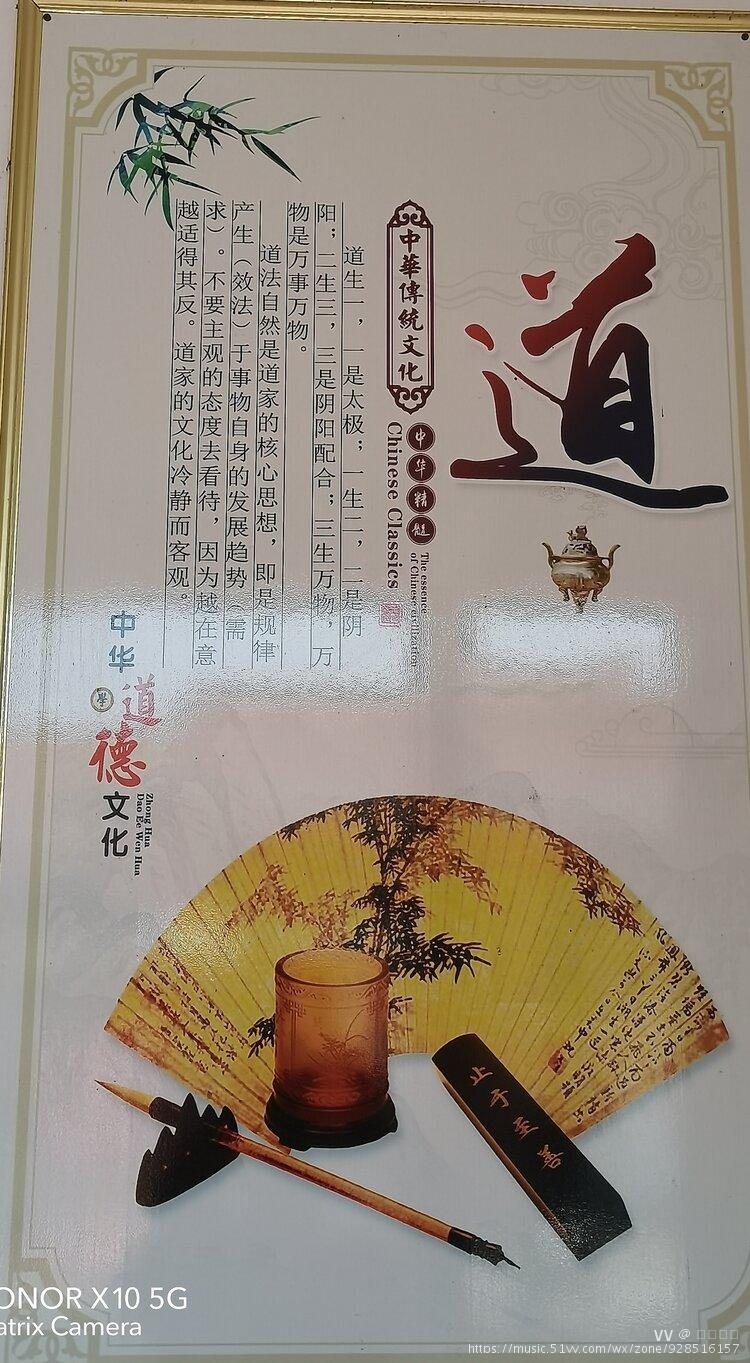 道
中華傳統文化
中华精髓
Chinese Classics
The essence
of Chinese civilization
道生一，一是太极；一生二，二是阴
阳；二生三，三是阴阳配合；三生万物，万
物是万事万物。
道法自然是道家的核心思想，即是规律
产生（效法）于事物自身的发展趋势（需
求）。不要主观的态度去看待，因为越在意
越适得其反。道家的文化冷静而客观。
中华
學
道德
文化
Zhong Hua
Dao De Wen Hua
止于至善
ONOR X10 5G
atrix Camera
VV @
https://music.51vv.com/wx/zone/928516157